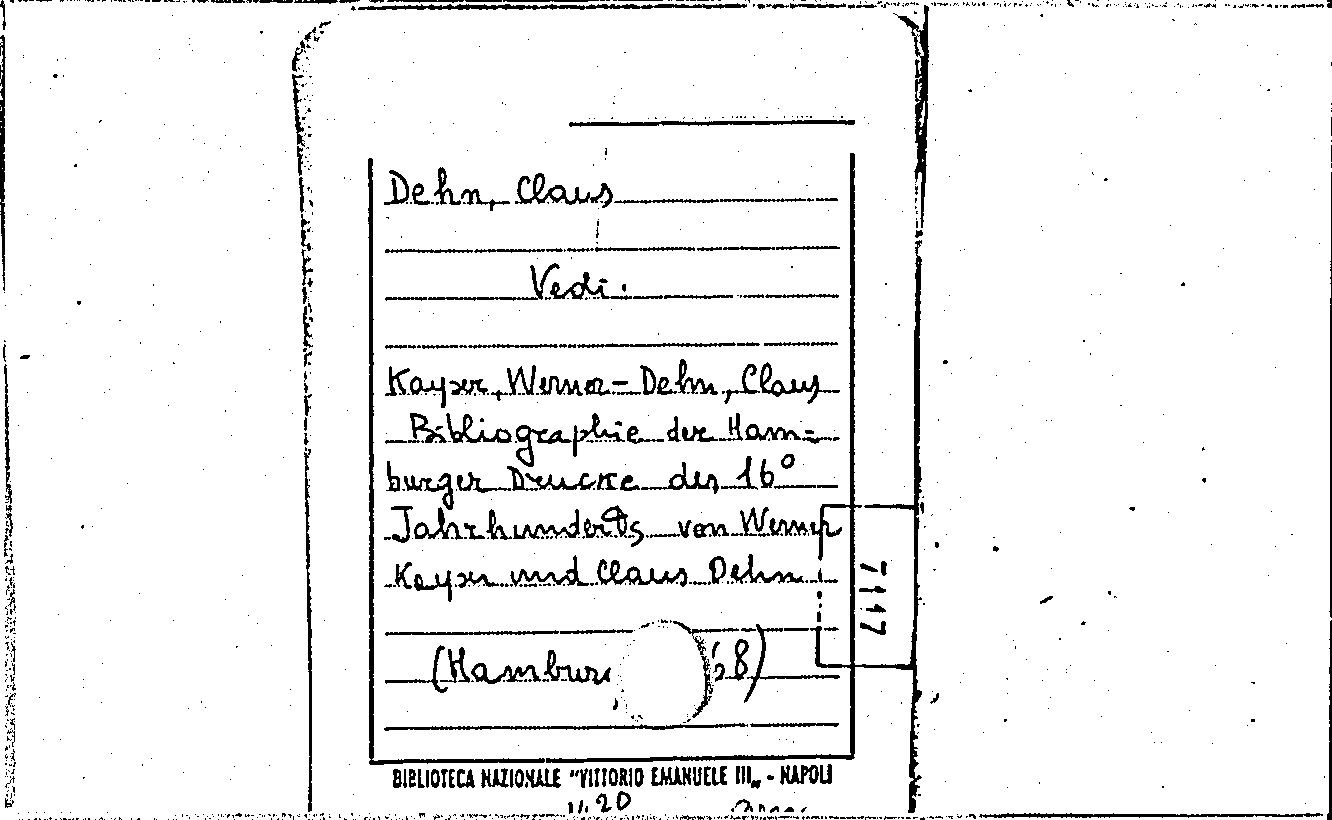 Dehn, Claus
Vedi.
Kayser, Werner - Dehn, Claus
Bibliographie der Ham=
burger Drucke des 16°
Jahrhunderts von Werner
Kayser und Claus Dehn
(Hamburg 68)
7117
BIBLIOTECA NAZIONALE "VITTORIO EMANUELE III„ - NAPOLI
20